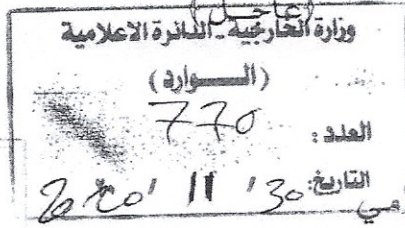 (عاجل)
وزارة الخارجية - الدائرة الاعلامية
(الـــوارد)
العدد : 770
التاريخ: 30 / 11 /
مي